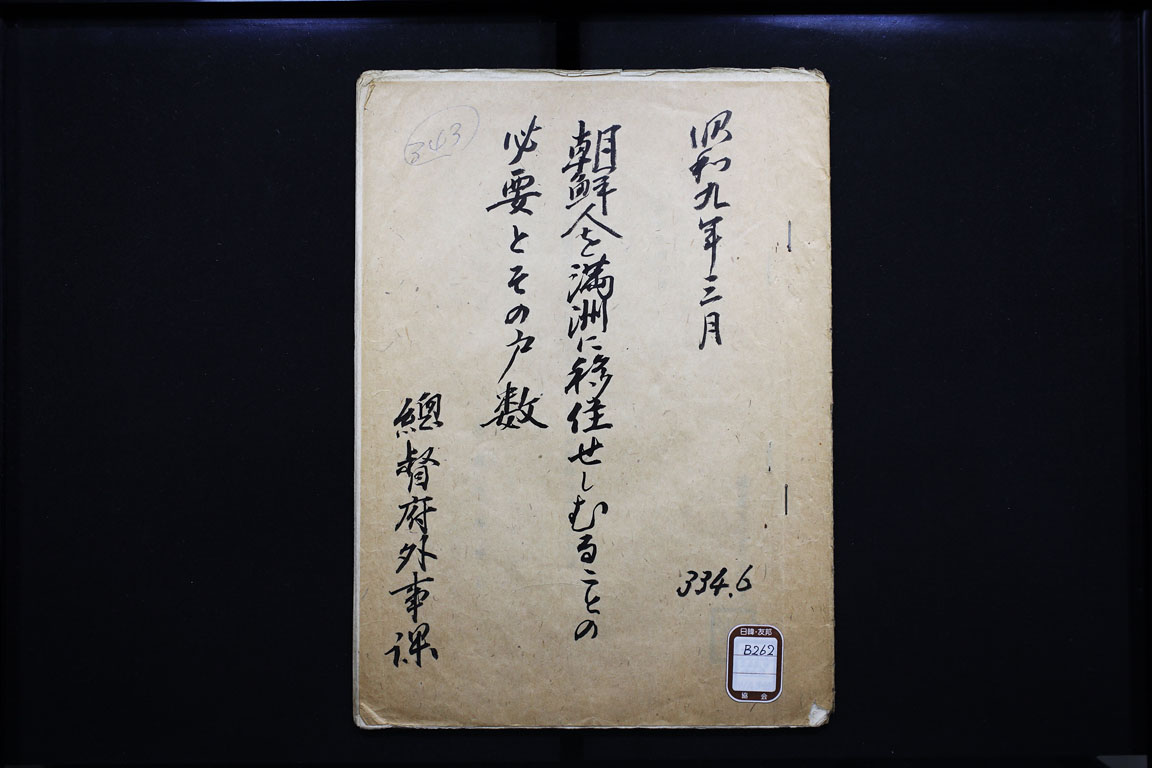 昭和九年三月
朝鮮人を満洲に移住せしむることの
必要とその戸数
總督府外事課
343
334.6
日韓・友邦
B262
協会